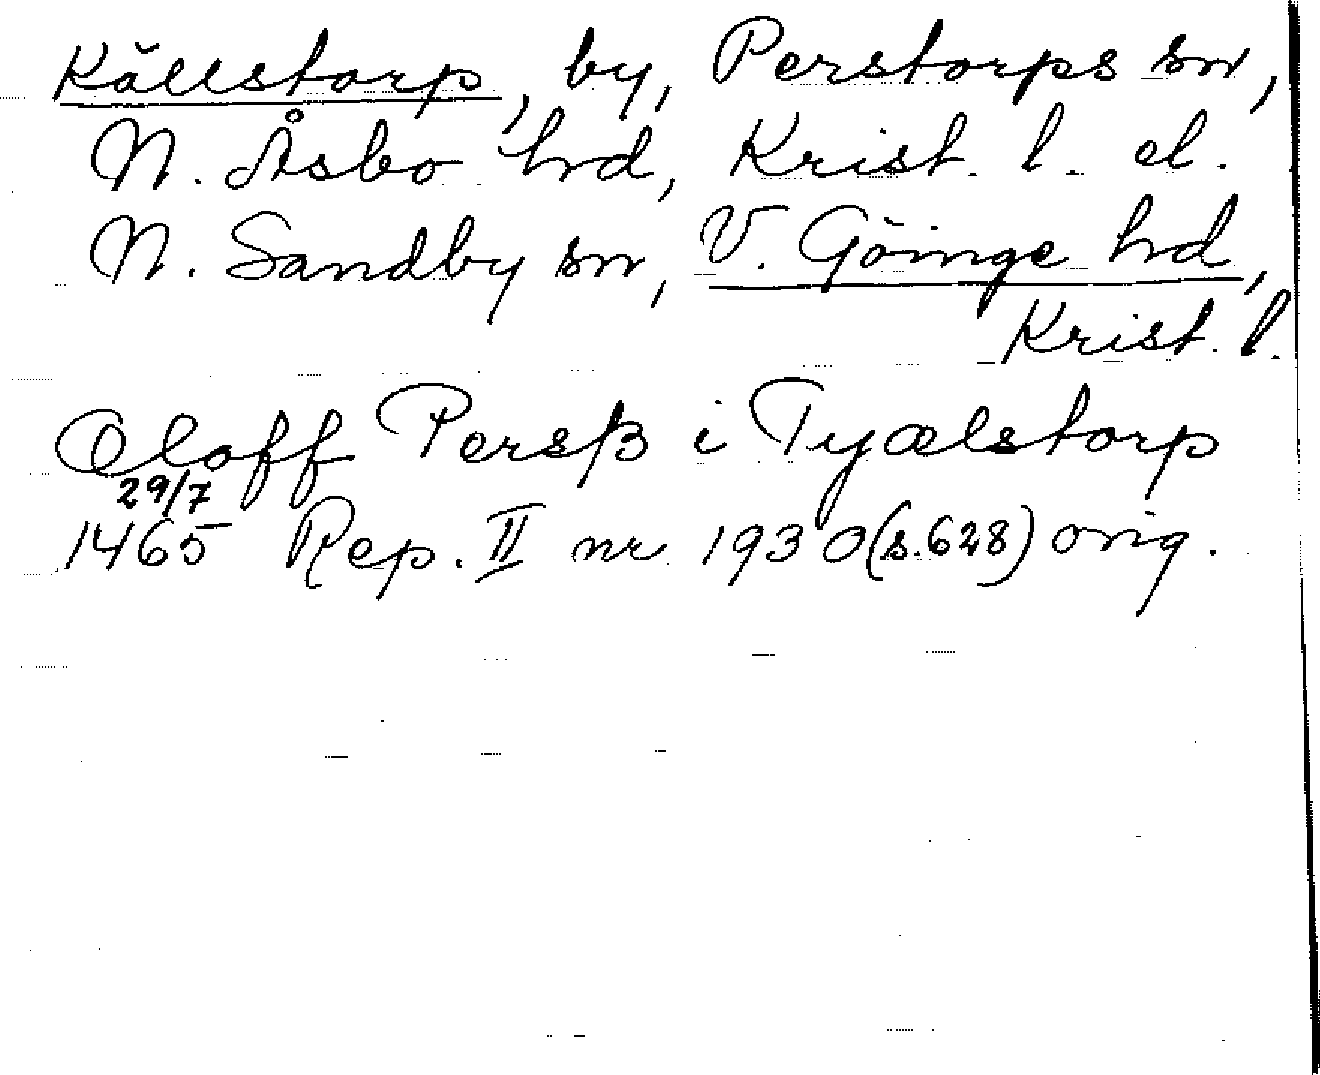 Källstorp, by, Perstorps sn,
N. Åsbo hrd, Krist. l. el.
N. Sandby sn, V. Göinge hrd,
Krist. l.
Oloff Persß i Tyælstorp
29/7
1465 Rep. II nr 1930 (s. 628) orig.